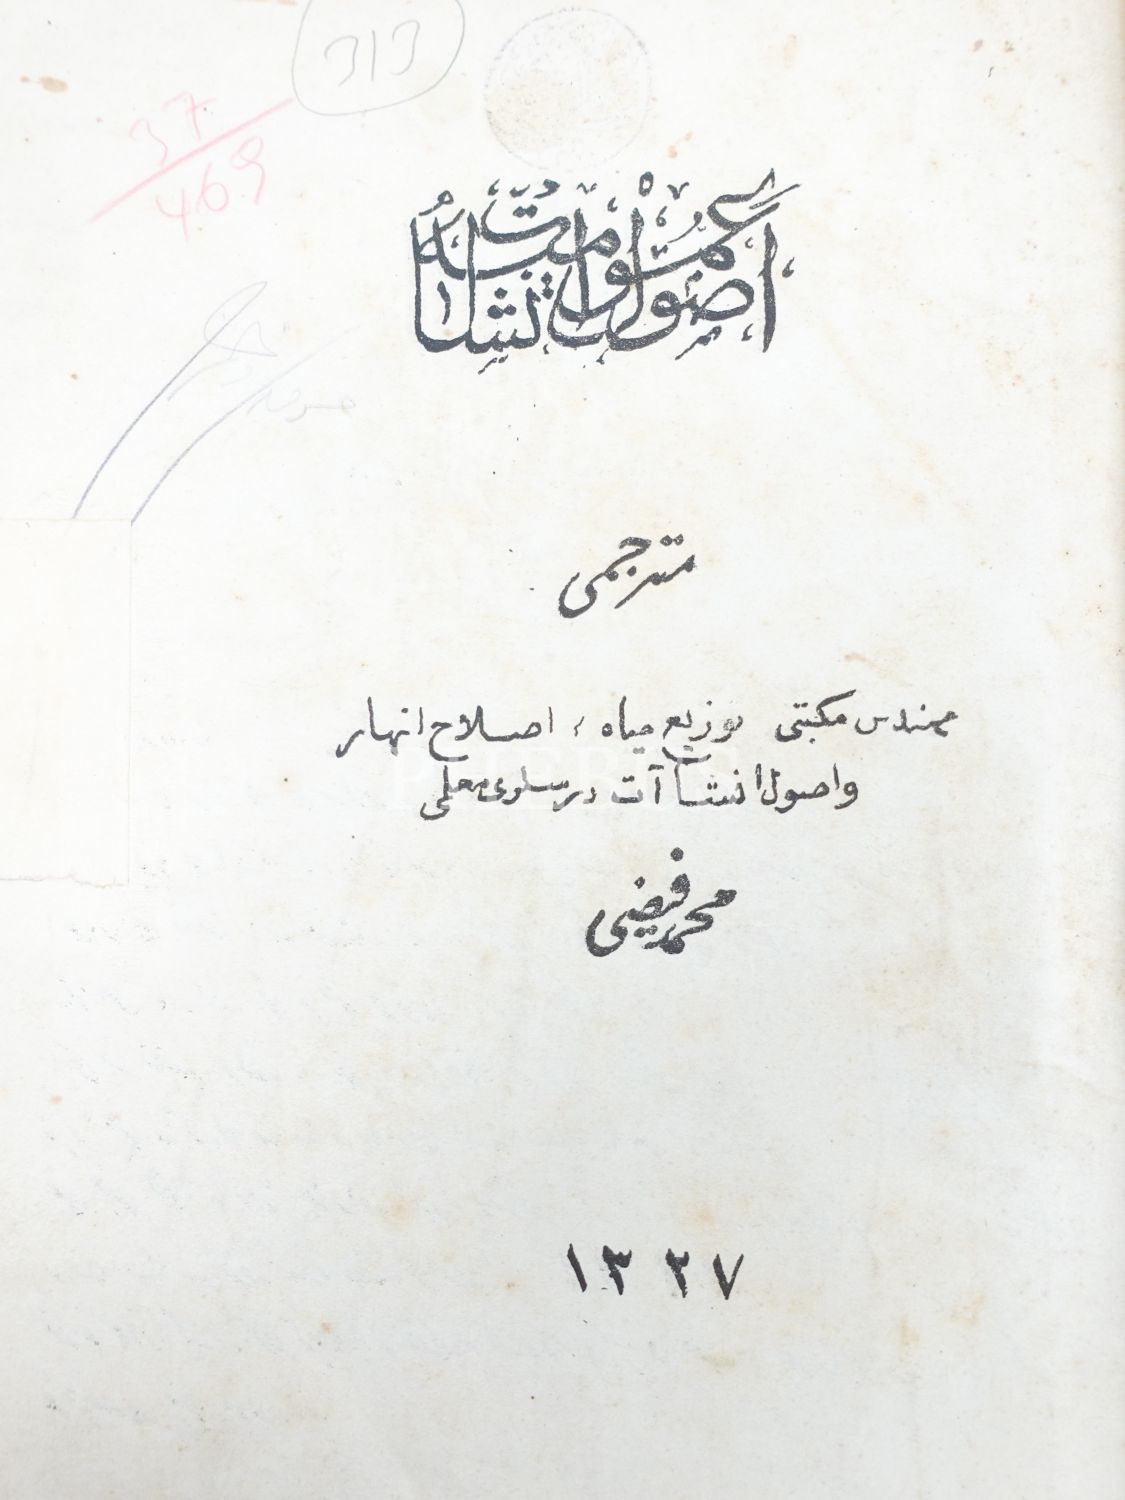 313
37
469
اصول عمومیۀ انشاآت
مترجمی
مهندس مكتبی توزیع میاه ، اصلاح انهار
واصول انشاآت درسلری معلمی
محمد فیضی
١٣٢٧